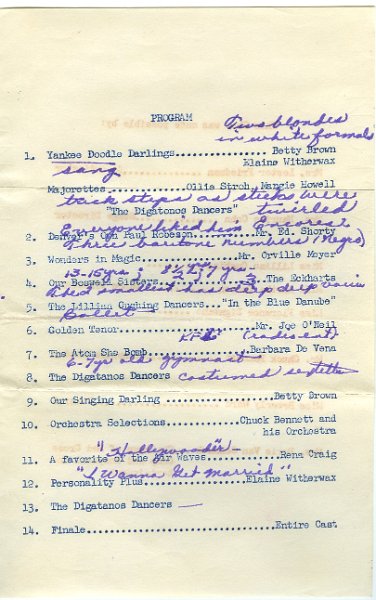 PROGRAM
Two blondes
in white formals
1. Yankee Doodle Darlings................Betty Brown
Elaine Witherwax
sang
Majorettes ........Ollie Stroh, Margie Howell
tack steps as sticks were
"The Digatonos Dancers" twirled
Everyone liked him (encores)
2. Denver's Own Paul Robeson.........Mr. Ed. Shorty
Three baritone numbers (Negro)
3. Wonders in Magic................Mr. Orville Moyer
13-15 yrs; 8 1/2 yr; 7 yrs.
4. Our Boswell Sisters............3.The Eckharts
The smallest has deep deep voice
5. The Lillian Cushing Dancers..."In the Blue Danube"
Ballet
6. Golden Tenor......................Mr. Joe O'Neil
KFEL (radio ent)
7. The Atom She Bomb................Barbara De Vena
6-7 yr old gymnast
8. The Digatanos Dancers costumed septette
9. Our Singing Darling ..................Betty Brown
10. Orchestra Selections...........Chuck Bennett and
his Orchestra
"Hollywooder"
11. A favorite of the Air Waves..........Rena Craig
"I Wanna Get Married"
12. Personality Plus................Elaine Witherwax
13. The Digatanos Dancers
14. Finale...............................Entire Cast